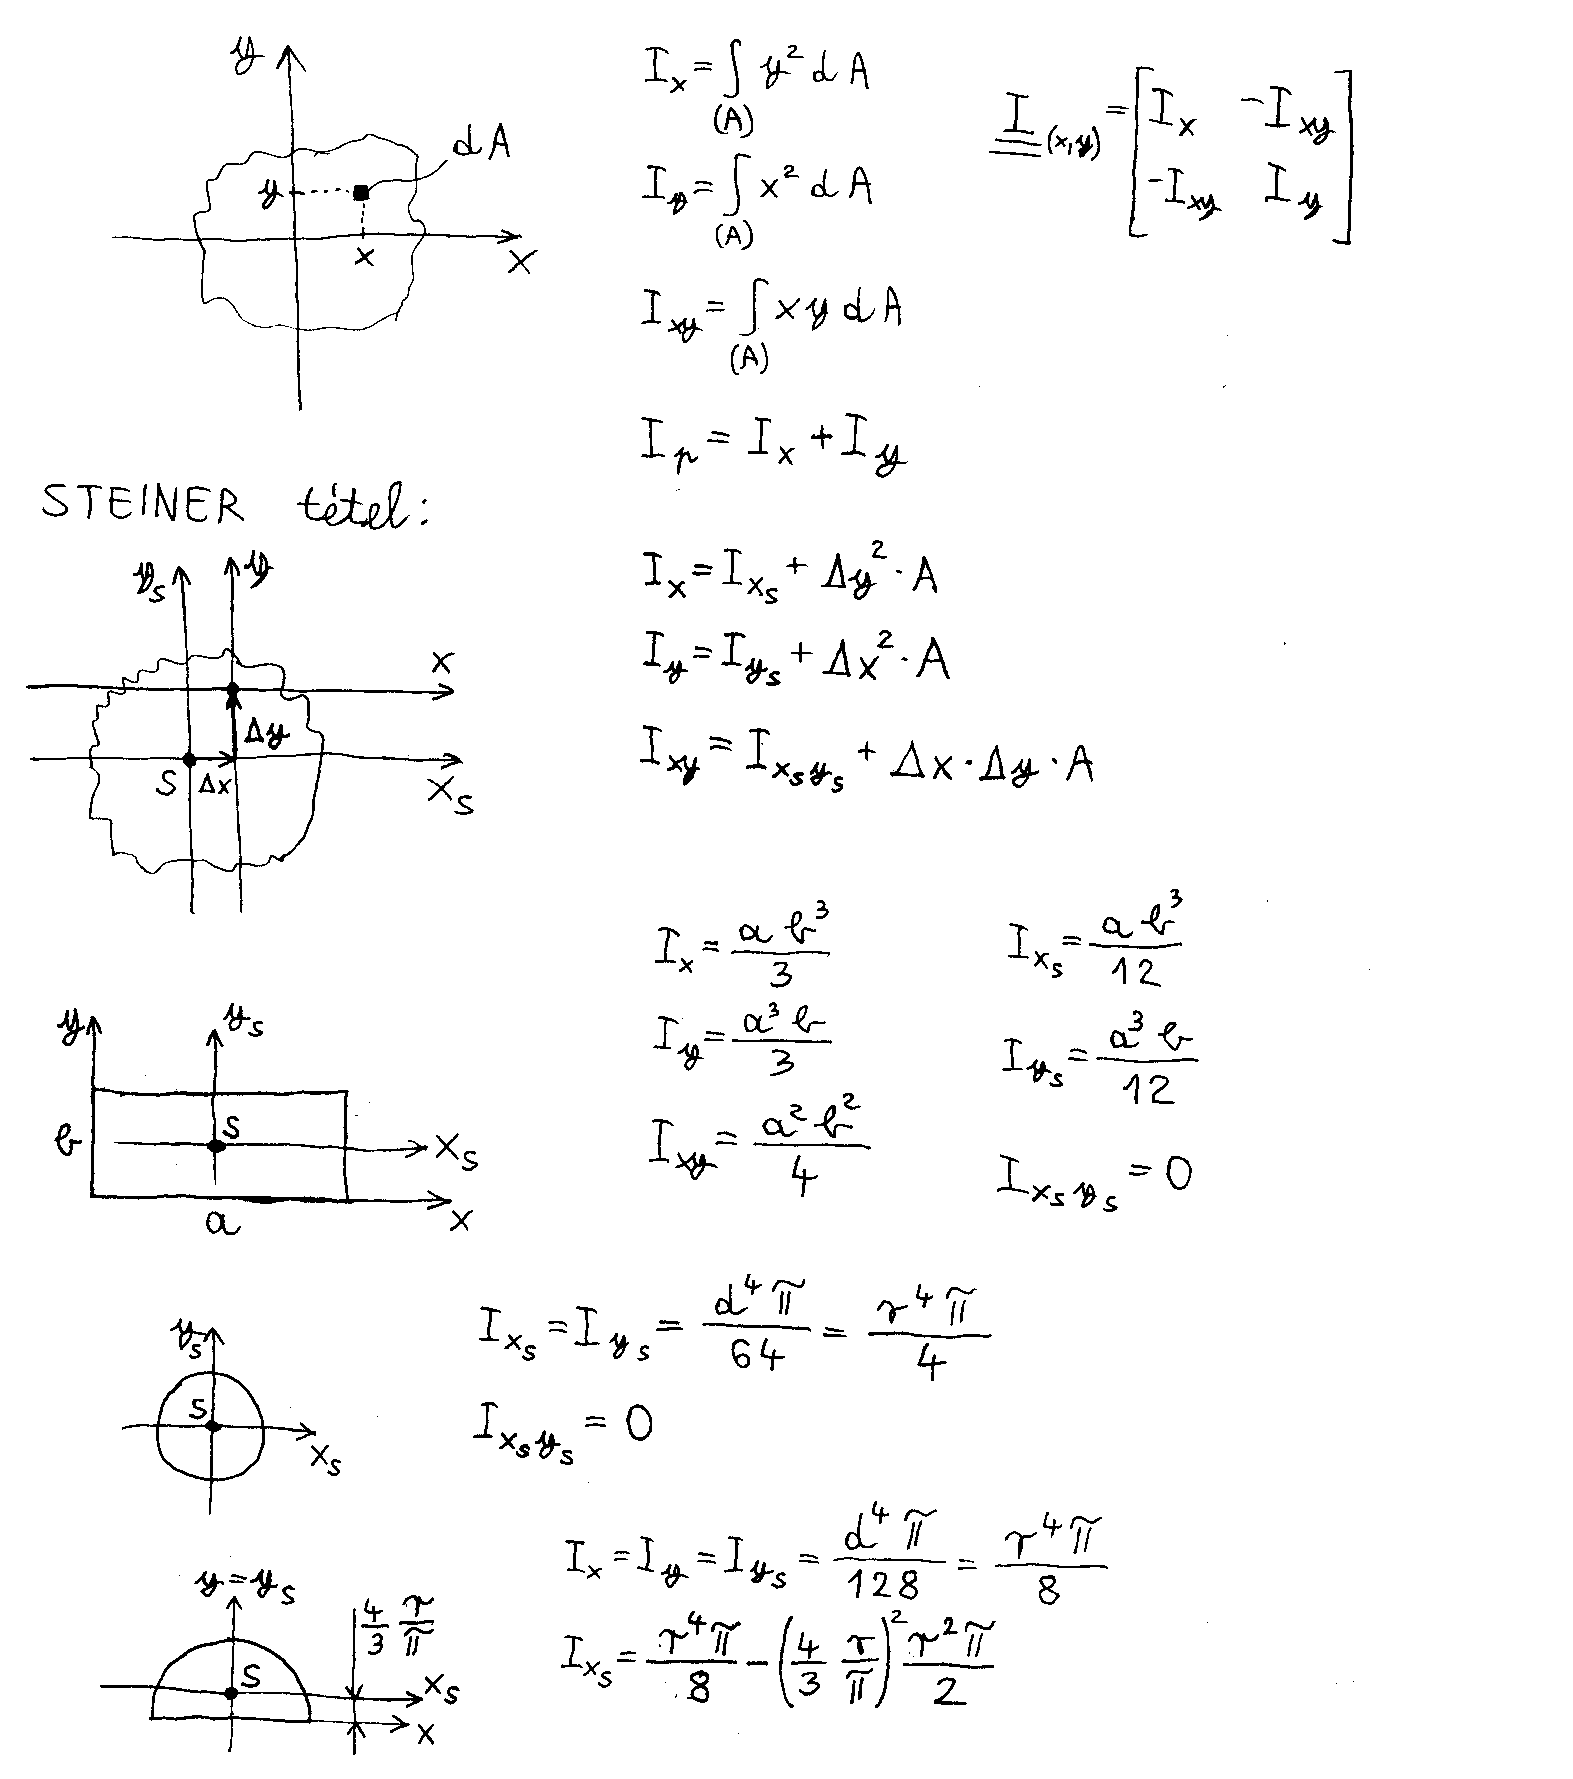 y
dA
y
x
x
I_x = ∫_(A) y² dA
I_y = ∫_(A) x² dA
I_xy = ∫_(A) x y dA
I_p = I_x + I_y
I_(x,y) = [ I_x -I_xy
-I_xy I_y ]
STEINER tétel:
y_s y
x
Δy
S Δx x_s
I_x = I_x_s + Δy² · A
I_y = I_y_s + Δx² · A
I_xy = I_x_s y_s + Δx · Δy · A
y y_s
b S x_s
a x
I_x = a b³ / 3
I_y = a³ b / 3
I_xy = a² b² / 4
I_x_s = a b³ / 12
I_y_s = a³ b / 12
I_x_s y_s = 0
y_s
S
x_s
I_x_s = I_y_s = d⁴ π / 64 = r⁴ π / 4
I_x_s y_s = 0
y = y_s
4/3 r/π
S x_s
x
I_x = I_y = I_y_s = d⁴ π / 128 = r⁴ π / 8
I_x_s = r⁴ π / 8 - (4/3 r/π)² r² π / 2